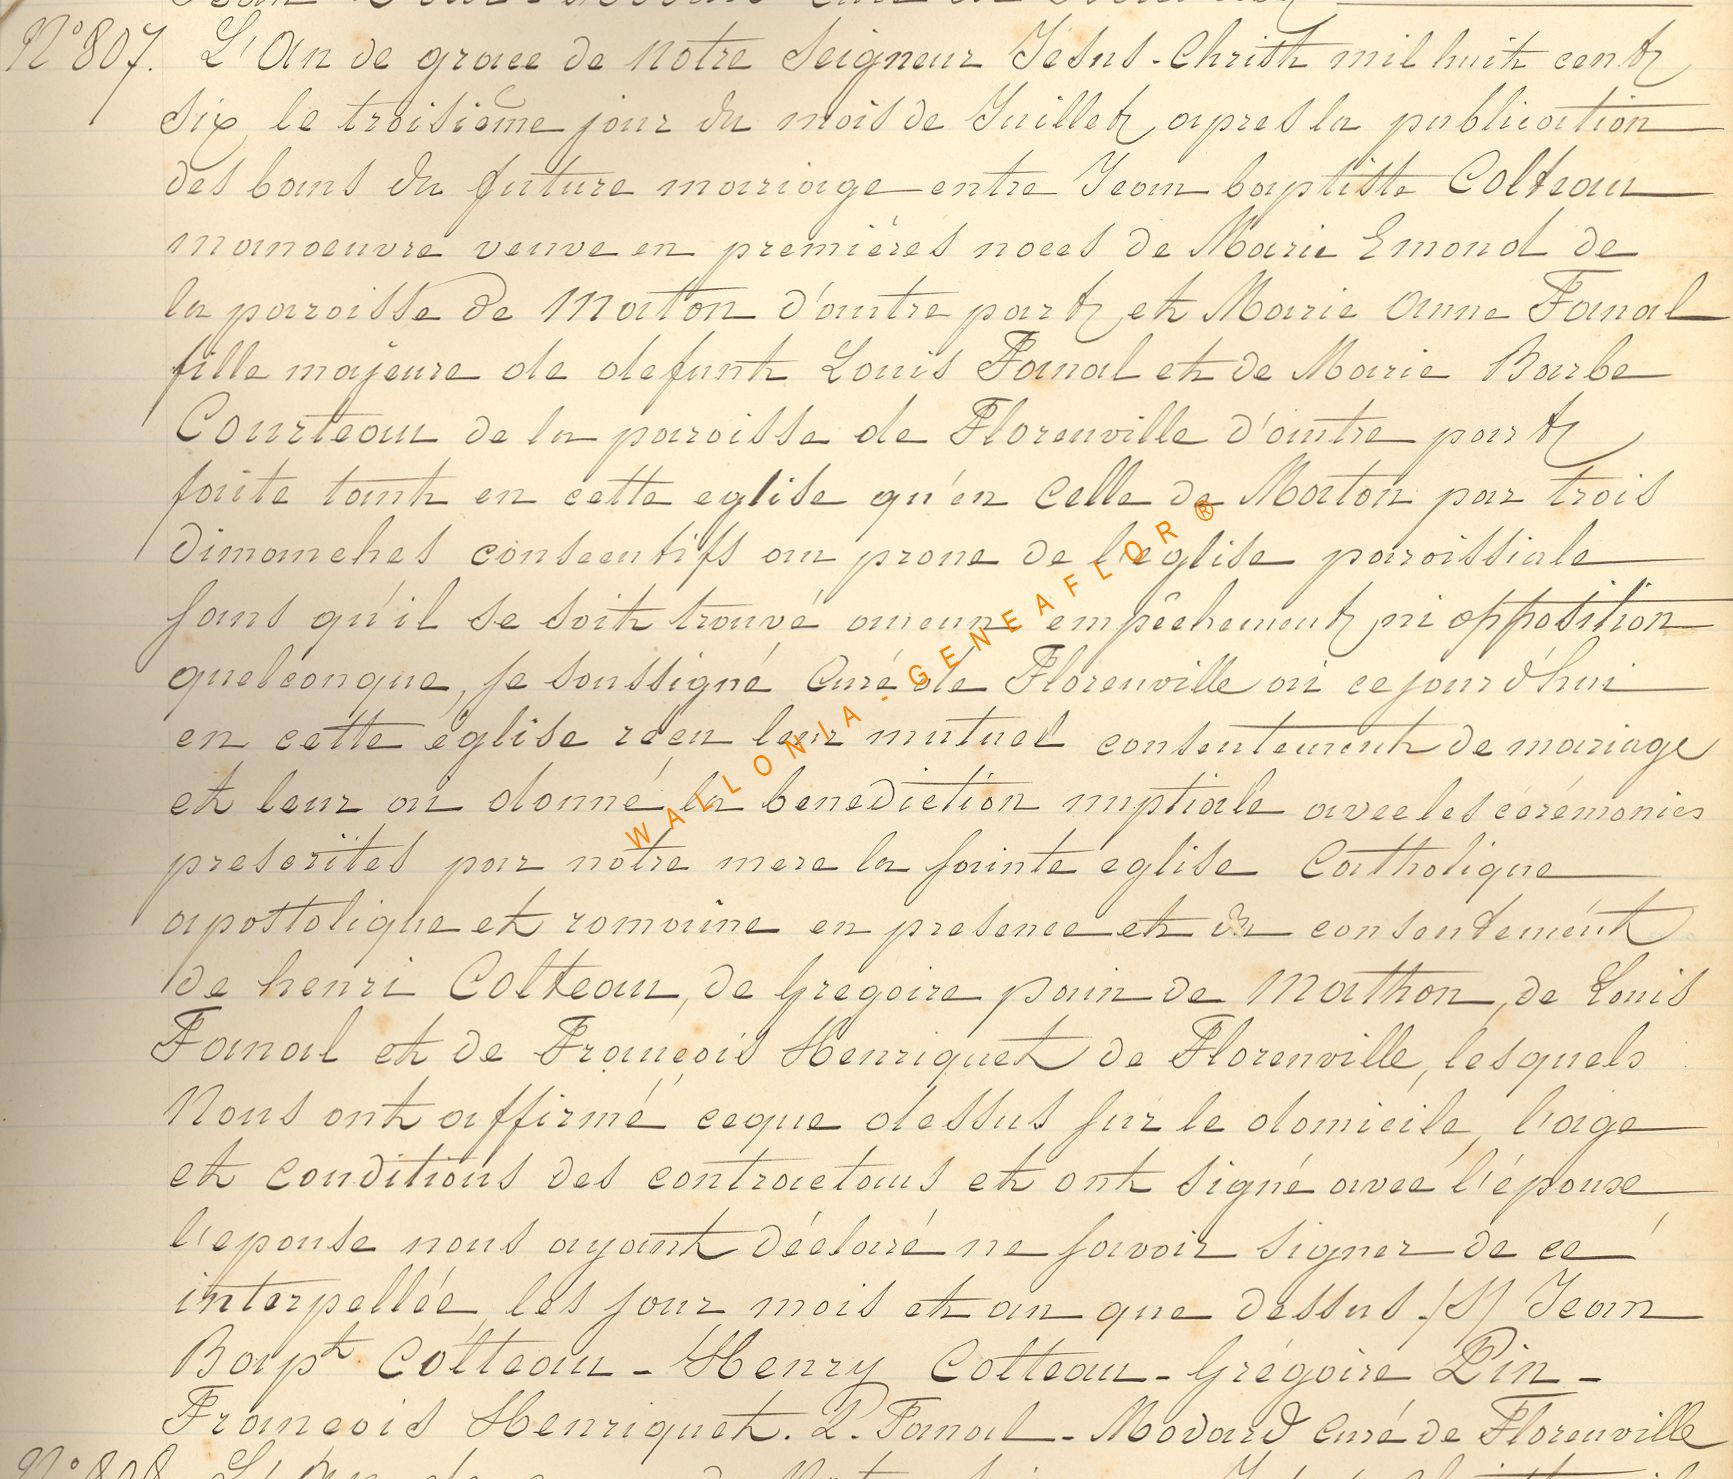 N° 807. L'An de grace de Notre Seigneur Jésus-Christ mil huit cent
six, le troisième jour du mois de Juillet, apres la publication
des bans du future mariage entre Jean baptiste Colteau
manoeuvre veuve en premières noces de Marie Emond de
la paroisse de Maton d'autre part, et Marie Anne Fanal
fille majeure de defunt Louis Fanal et de Marie Barbe
Courteau de la paroisse de Florenville d'autre part
faite tant en cette eglise qu'en celle de Maton par trois
dimanches consecutifs au prone de l'eglise paroissiale
sans qu'il se soit trouvé aucun empêchement, ni opposition
quelconque, je soussigné Curé de Florenville ai ce jourd'hui
en cette église reçu leur mutuel consentement de mariage
et leur ai donné la benediction nuptiale avec les cérémonies
prescrites par notre mere la sainte eglise Catholique
apostolique et romaine en presence et du consentement
de henri Colteau, de Gregoire pain de Mathon, de Louis
Fanal et de François Henriquet de Florenville, lesquels
Nous ont affirmé ce que dessus sur le domicile, l'age
et conditions des contractans et ont signé avec l'épouse
l'epouse nous ayant déclaré ne savoir signer de ce
interpellée, les jour mois et an que dessus. /S/ Jean
Bapt. Colteau - Henry Colteau - Grégoire Pin -
François Henriquet. L. Fanal - Modard Curé de Florenville
N° 808. L'An de
WALLONIA - GENEAFLOR ®